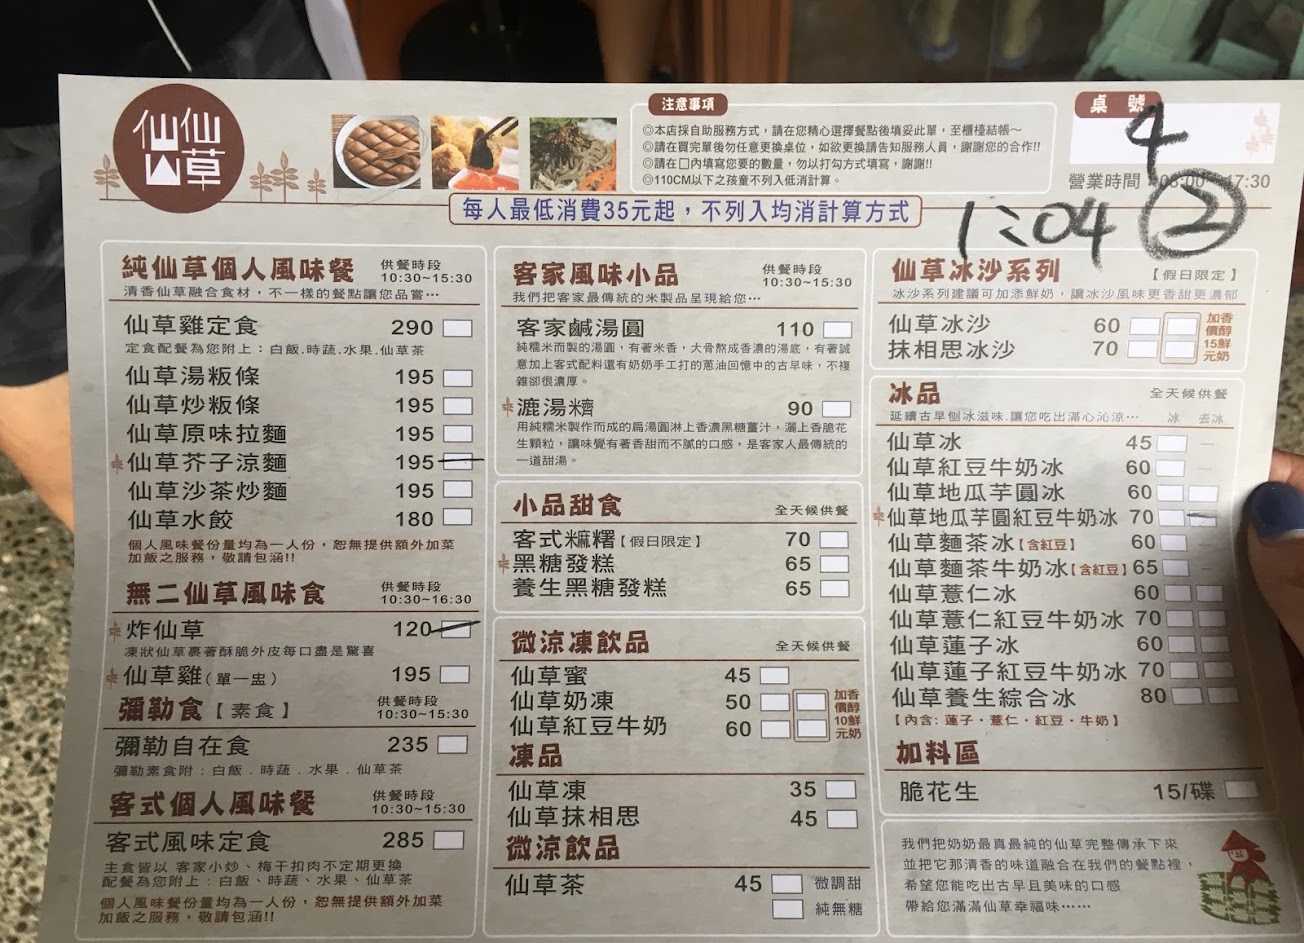 仙仙
山草
注意事項
◎本店採自助服務方式，請在您精心選擇餐點後填妥此單，至櫃檯結帳～
◎請在買完單後勿任意更換桌位，如欲更換請告知服務人員，謝謝您的合作!!
◎請在□內填寫您要的數量，勿以打勾方式填寫，謝謝!!
◎110CM以下之孩童不列入低消計算。
桌 號
4
營業時間
17:30
每人最低消費35元起，不列入均消計算方式
1:04 ②
純仙草個人風味餐 供餐時段 10:30~15:30
清香仙草融合食材，不一樣的餐點讓您品嘗…
仙草雞定食 290
定食配餐為您附上：白飯.時蔬.水果.仙草茶
仙草湯粄條 195
仙草炒粄條 195
仙草原味拉麵 195
仙草芥子涼麵 195
仙草沙茶炒麵 195
仙草水餃 180
個人風味餐份量均為一人份，恕無提供額外加菜
加飯之服務，敬請包涵!!
無二仙草風味食 供餐時段 10:30~16:30
炸仙草 120
凍狀仙草裹著酥脆外皮每口盡是驚喜
仙草雞(單一盅) 195
彌勒食【素食】 供餐時段 10:30~15:30
彌勒自在食 235
彌勒素食附：白飯．時蔬．水果．仙草茶
客式個人風味餐 供餐時段 10:30~15:30
客式風味定食 285
主食皆以 客家小炒、梅干扣肉不定期更換
配餐為您附上：白飯、時蔬、水果、仙草茶
個人風味餐份量均為一人份，恕無提供額外加菜
加飯之服務，敬請包涵!!
客家風味小品 供餐時段 10:30~15:30
我們把客家最傳統的米製品呈現給您…
客家鹹湯圓 110
純糯米而製的湯圓，有著米香，大骨熬成香濃的湯底，有著誠
意加上客式配料還有奶奶手工打的蔥油回憶中的古早味，不複
雜卻很濃厚。
漉湯糈 90
用純糯米製作而成的扁湯圓淋上香濃黑糖薑汁，灑上香脆花
生顆粒，讓味覺有著香甜而不膩的口感，是客家人最傳統的
一道甜湯。
小品甜食 全天候供餐
客式麻糬【假日限定】 70
黑糖發糕 65
養生黑糖發糕 65
微涼凍飲品 全天候供餐
仙草蜜 45
仙草奶凍 50
仙草紅豆牛奶 60
加香
價醇
10鮮
元奶
凍品
仙草凍 35
仙草抹相思 45
微涼飲品
仙草茶 45 微調甜
純無糖
仙草冰沙系列 【假日限定】
冰沙系列建議可加添鮮奶，讓冰沙風味更香甜更濃郁
仙草冰沙 60
抹相思冰沙 70
加香
價醇
15鮮
元奶
冰品 全天候供餐
延續古早刨冰滋味.讓您吃出滿心沁涼… 冰 去冰
仙草冰 45
仙草紅豆牛奶冰 60
仙草地瓜芋圓冰 60
仙草地瓜芋圓紅豆牛奶冰 70
仙草麵茶冰【含紅豆】 60
仙草麵茶牛奶冰【含紅豆】 65
仙草薏仁冰 60
仙草薏仁紅豆牛奶冰 70
仙草蓮子冰 60
仙草蓮子紅豆牛奶冰 70
仙草養生綜合冰 80
【內含：蓮子・薏仁・紅豆・牛奶】
加料區
脆花生 15/碟
我們把奶奶最真最純的仙草完整傳承下來
並把它那清香的味道融合在我們的餐點裡，
希望您能吃出古早且美味的口感
帶給您滿滿仙草幸福味……